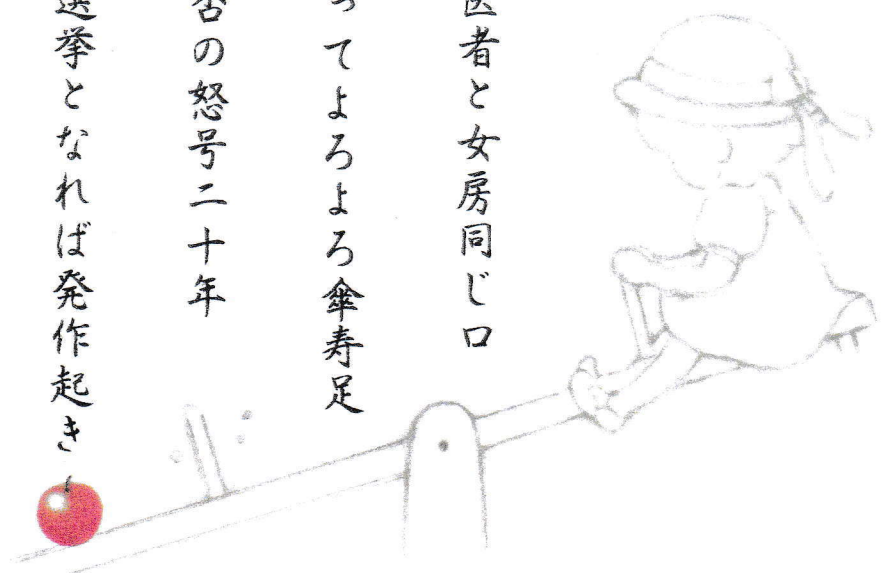 医者と女房同じ口
ってよろよろ傘寿足
否の怒号二十年
選挙となれば発作起き